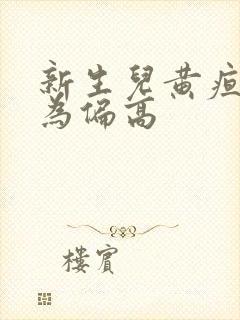 新生兒黃疸
為偏高
樓賓